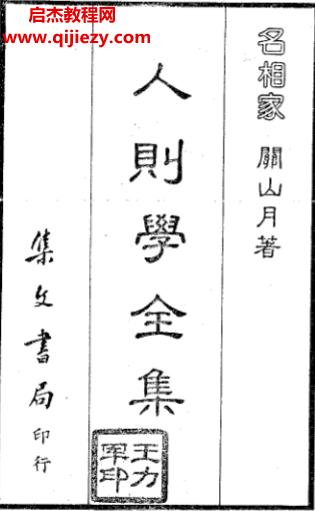 启杰教程网
www.qijiezy.com
名相家 關山月著
人則學全集
集文書局印行
王力
军印